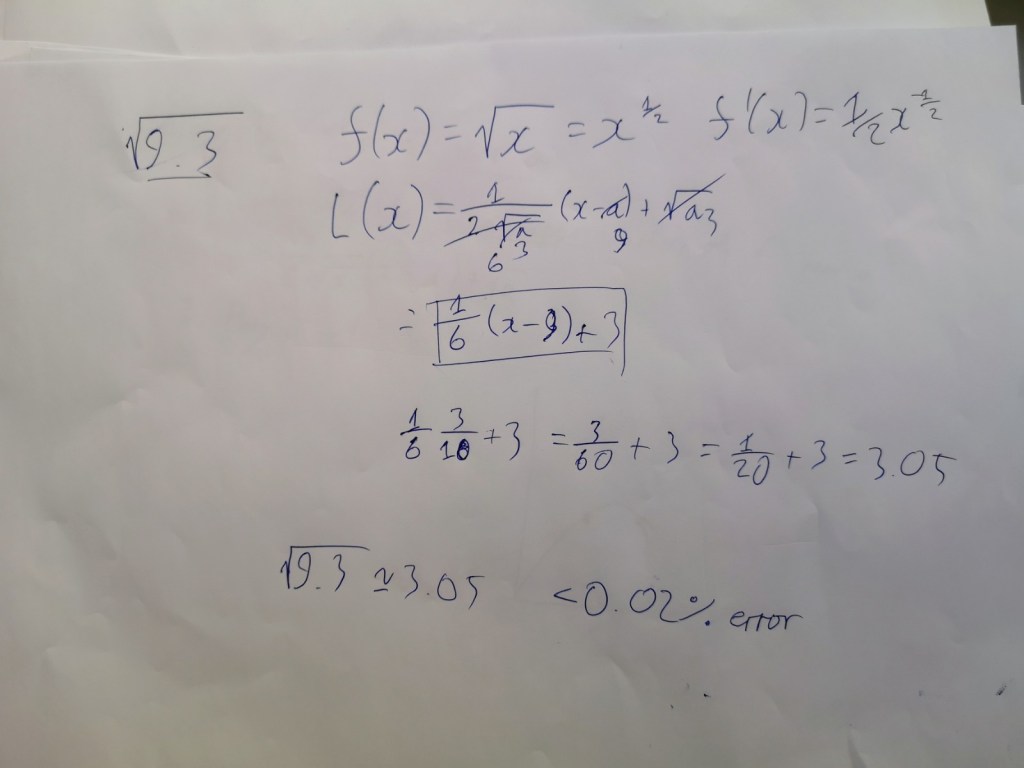 √9.3 f(x) = √x = x^1/2 f'(x) = 1/2 x^-1/2
L(x) = 1/(2√a) (x-a) + √a 3
6 3 9
= 1/6 (x-9) + 3
1/6 3/10 + 3 = 3/60 + 3 = 1/20 + 3 = 3.05
√9.3 ≃ 3.05 <0.02% error